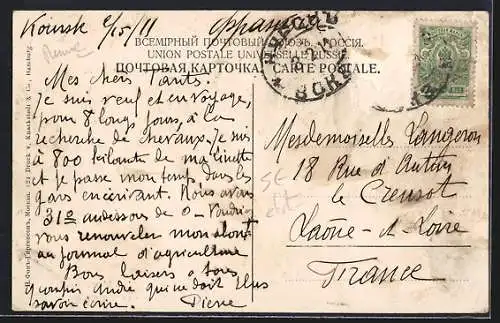 Koursk 6/15/11
Франція
ВСЕМІРНЫЙ ПОЧТОВЫЙ СОЮЗЪ. РОССІЯ.
UNION POSTALE UNIVERSELLE RUSSIE.
ПОЧТОВАЯ КАРТОЧКА. CARTE POSTALE.
Mes chers Tants.
Je suis veuf et en voyage,
pour 8 longs jours, à la
recherche de chevaux. Je suis
à 800 kilomts de ma Linette
et je passe mon temps dans les
gares en écrivant. Nous avons
31° audessous de 0 - Voudriez
vous renouveler mon abont
au journal d'agriculture
Bons baisers à tous
y compris André qui ne doit plus
savoir écrire. Pierre
Mesdemoiselles Laugeron
18 Rue d'Autun
Le Creusot
Saône-et-Loire
France